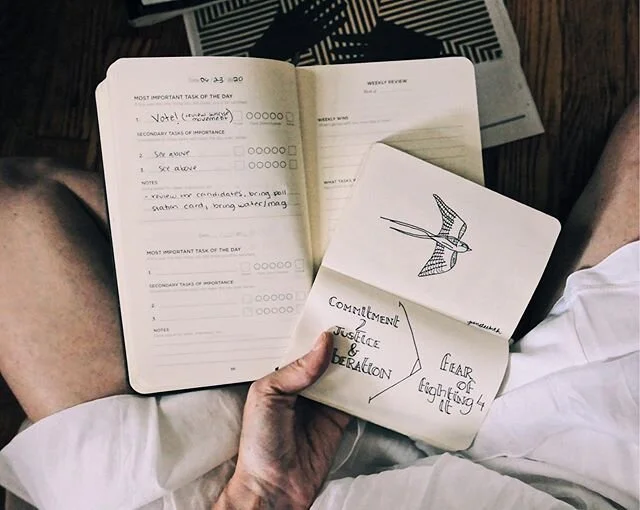 Date: 04/23/20
MOST IMPORTANT TASK OF THE DAY
1. Vote!
movement)
SECONDARY TASKS OF IMPORTANCE
2. See above
3. See above
NOTES
- review the candidates, bring poll
station card, bring water/mag
MOST IMPORTANT TASK OF THE DAY
1.
SECONDARY TASKS OF IMPORTANCE
2.
3.
NOTES
WEEKLY REVIEW
WEEKLY WINS
WHAT TASKS
COMMITMENT
2
JUSTICE
&
BERATION
FEAR
OF
fighting 4
it